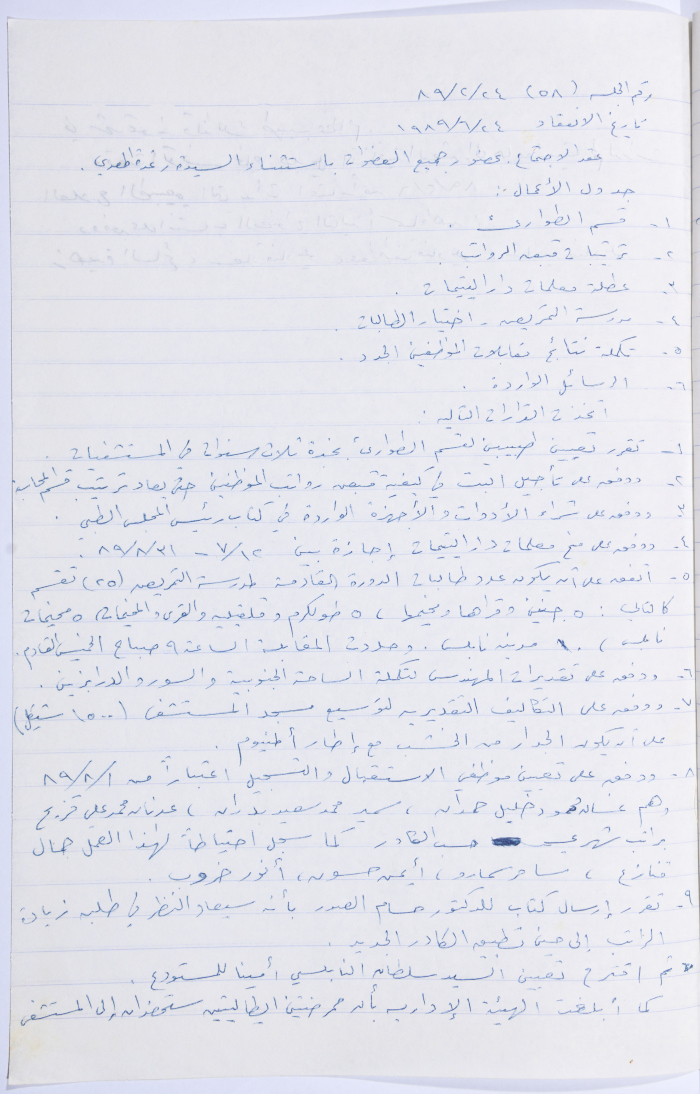 رقم الجلسه (٥٨) ٨٩/٢/٢٤
تاريخ الانعقاد ١٩٨٩/٦/٢٤
عقد الاجتماع بحضور جميع العضوات باستثناء السيدة رغدة المصري .
جدول الأعمال :
١- قسم الطوارئ .
٢- ترتيبات قبض الرواتب .
٣- عطلة معلمات دار اليتيمات .
٤- مدرسة التمريض - اختيار الطالبات .
٥- تكملة نتائج مقابلات الموظفين الجدد .
٦- الرسائل الواردة .
اتخذت القرارات التاليه :
١- تقرر تعيين طبيبين لقسم الطوارئ بخبرة ثلاث سنوات في المستشفيات .
٢- ووفق على تأجيل البت في كيفية قبض رواتب الموظفين حتى يعاد ترتيب قسم المحاسبة
٣- ووفق على شراء الأدوات والأجهزة الواردة في كتاب رئيس المجلس الطبي .
٤- ووفق على منح معلمات دار اليتيمات إجازة بين ٧/١٢ - ٨٩/٨/٣١ .
٥- اتفق على أن يكون عدد طالبات الدورة القادمة لمدرسة التمريض (٢٥) تقسم
كالتالي : ٥ جنين وقراها ومخيمها ، ٥ طولكرم وقلقيليه والقرى والمخيمات ، ٥ مخيمات
نابلس ، ١٠ مدينة نابلس . وحددت المقابلة الساعة ٩ صباح الخميس القادم .
٦- ووفق على تقديرات المهندس لتكملة الساحة الجنوبية والسور والدرابزين .
٧- ووفق على التكاليف التقديريه لتوسيع مسجد المستشفى (١٥٠٠ شيكل)
على أن يكون الجدار من الخشب مع إطار ألمنيوم .
٨- ووفق على تعيين موظفي الاستقبال والتسجيل اعتباراً من ٨٩/٨/١
وهم غسان محمود خليل حمدان ، سمير محمد سعيد بدران ، عدنان محمد علي قزيح
براتب شهري حسب الكادر كما سجل احتياطاً لهذا العمل جمال
قنازع ، سامر سمارو ، أيمن حسون ، أنور خروب .
٩- تقرر إرسال كتاب للدكتور حسام الصدر بأنه سيعاد النظر في طلبه زيادة
الراتب إلى حين تطبيق الكادر الجديد .
تم اقتراح تعيين السيد سلطان النابلسي أمينا للمستودع .
كما أبلغت الهيئة الإدارية بأن ممرضتين ايطاليتين ستحضران إلى المستشفى